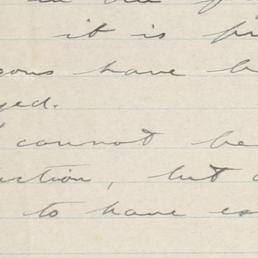 it is
eons have
yed.
cannot be
ction, but
to have es